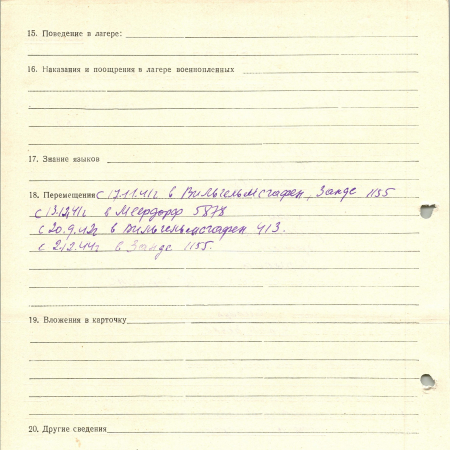 15. Поведение в лагере:
16. Наказания и поощрения в лагере военнопленных
17. Знание языков
18. Перемещения с 17.11.41г в Вильгельмсгафен, Занде 1135
с 13.12.41г в Меердорф 5878
с 20.9.42г в Вильгельмсгафен 413.
с 2.12.44г в Занде 1155.
19. Вложения в карточку
20. Другие сведения